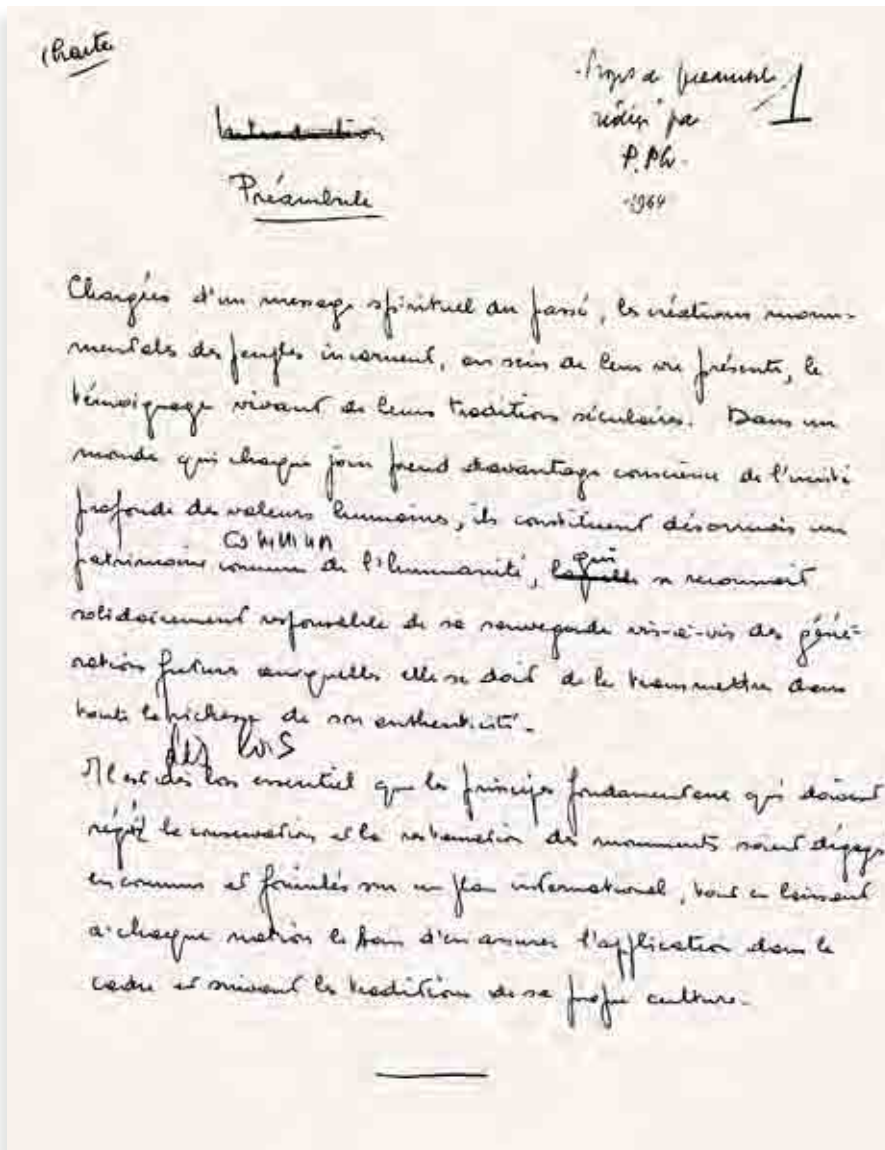 Charte
Projet de préambule 1
rédigé par
P. Ph.
1964
Introduction
Préambule
Chargées d'un message spirituel du passé, les créations monu-
mentales des peuples incarnent, au sein de leur vie présente, le
témoignage vivant de leurs traditions séculaires. Dans un
monde qui chaque jour prend davantage conscience de l'unité
profonde des valeurs humaines, ils constituent désormais un
commun
patrimoine commun de l'humanité, laquelle qui se reconnait
solidairement responsable de sa sauvegarde vis-à-vis des géné-
rations futures auxquelles elle se doit de le transmettre dans
toute la richesse de son authenticité.
dès lors
Il est dès lors essentiel que les principes fondamentaux qui doivent
régir la conservation et la restauration des monuments soient dégagés
en commun et formulés sur un plan international, tout en laissant
à chaque nation le soin d'en assurer l'application dans le
cadre et suivant les traditions de sa propre culture.